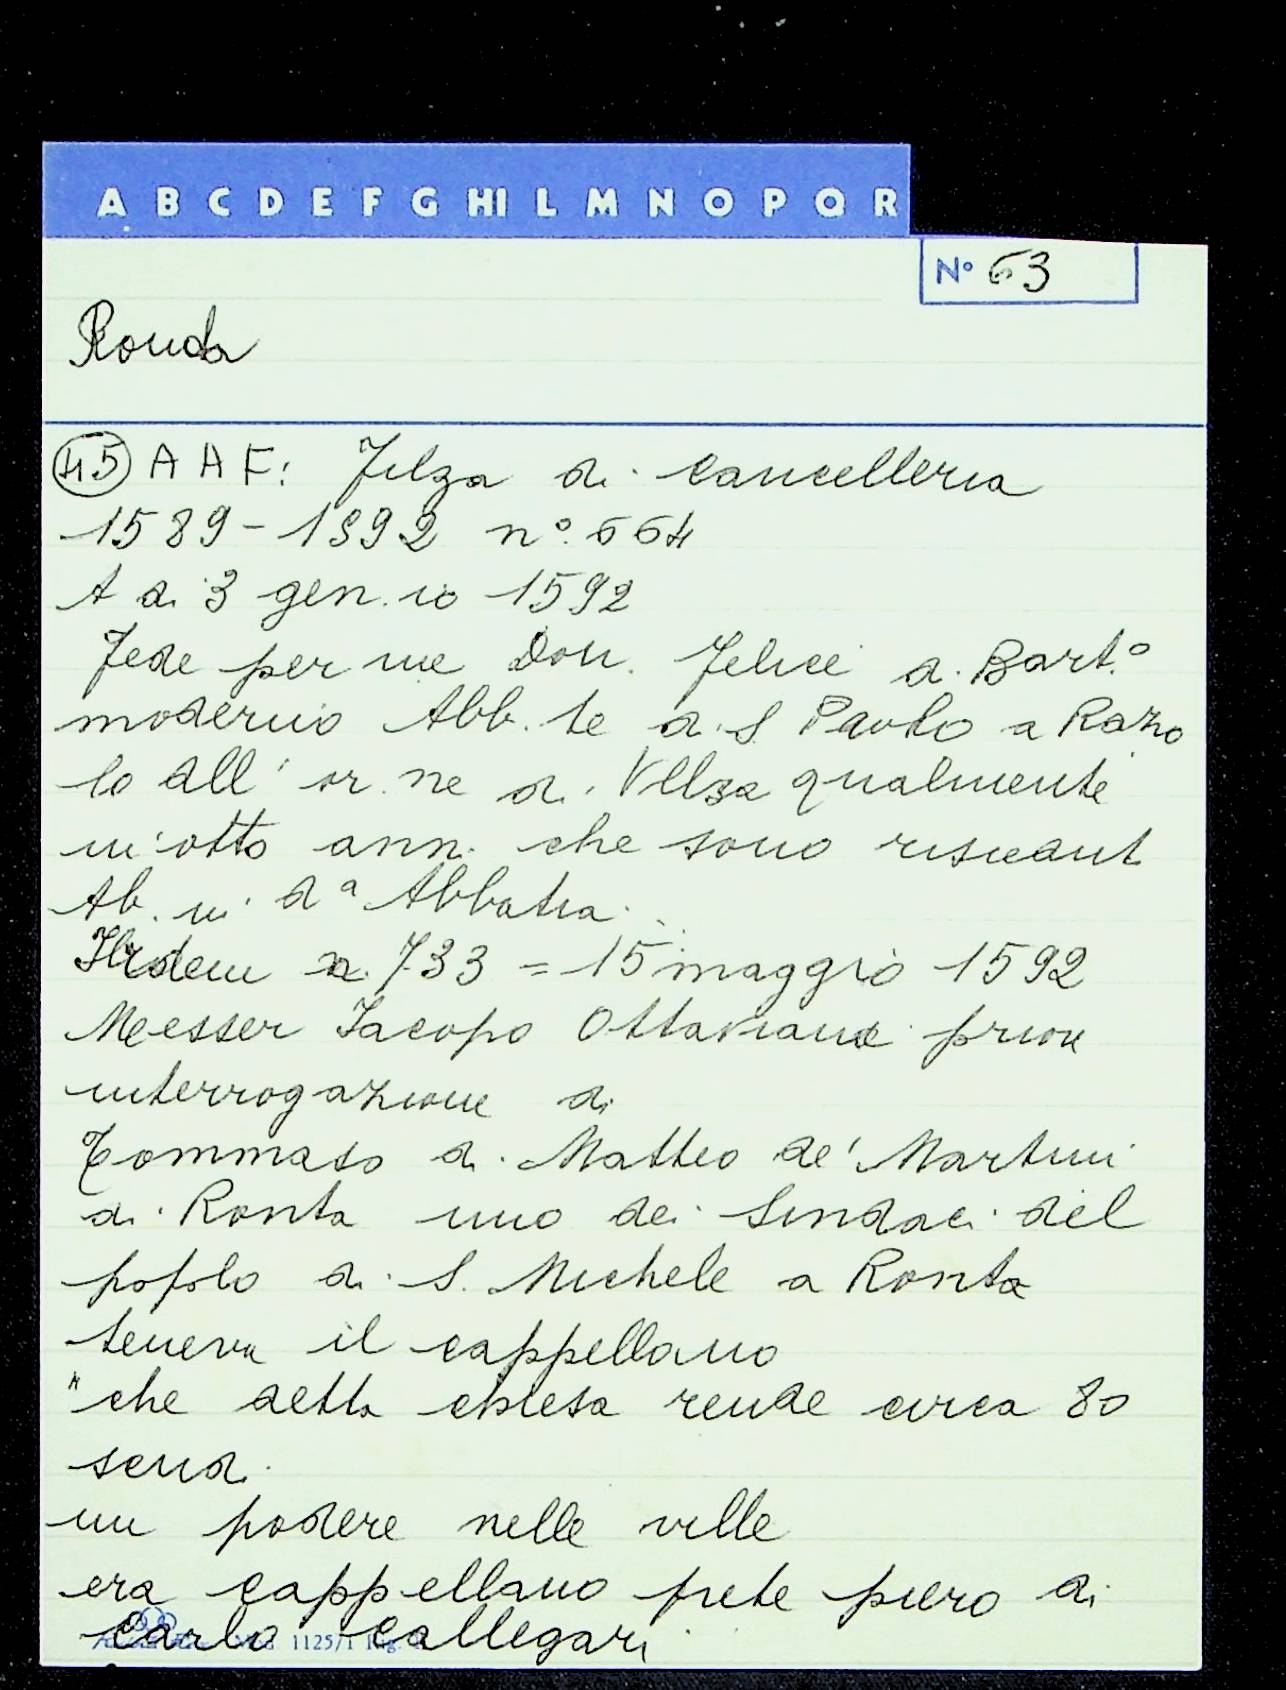 A B C D E F G HI L M N O P Q R
N° 63
Ronda
45 A A F: Filza di Cancelleria
1589-1592 n°. 664
A di 3 gen.io 1592
Fede per me Don. Felice di Bart.°
moderno Abb.te di S. Paolo a Razzo
lo all' or.ne di Vllsa qualmente
in otto anni che sono
Ab. in d^a Abbatia.
Ibidem n. 733 = 15 maggio 1592
Messer Jacopo Ottaviani priore
interrogazione di
Tommaso di Matteo de' Martini
di Ronta uno dei Sindaci del
popolo di S. Michele a Ronta
teneva il cappellano
"che detta chiesa rende circa 80
scudi
un podere nelle ville
era cappellano prete piero di
Carlo Callegari
1125/1